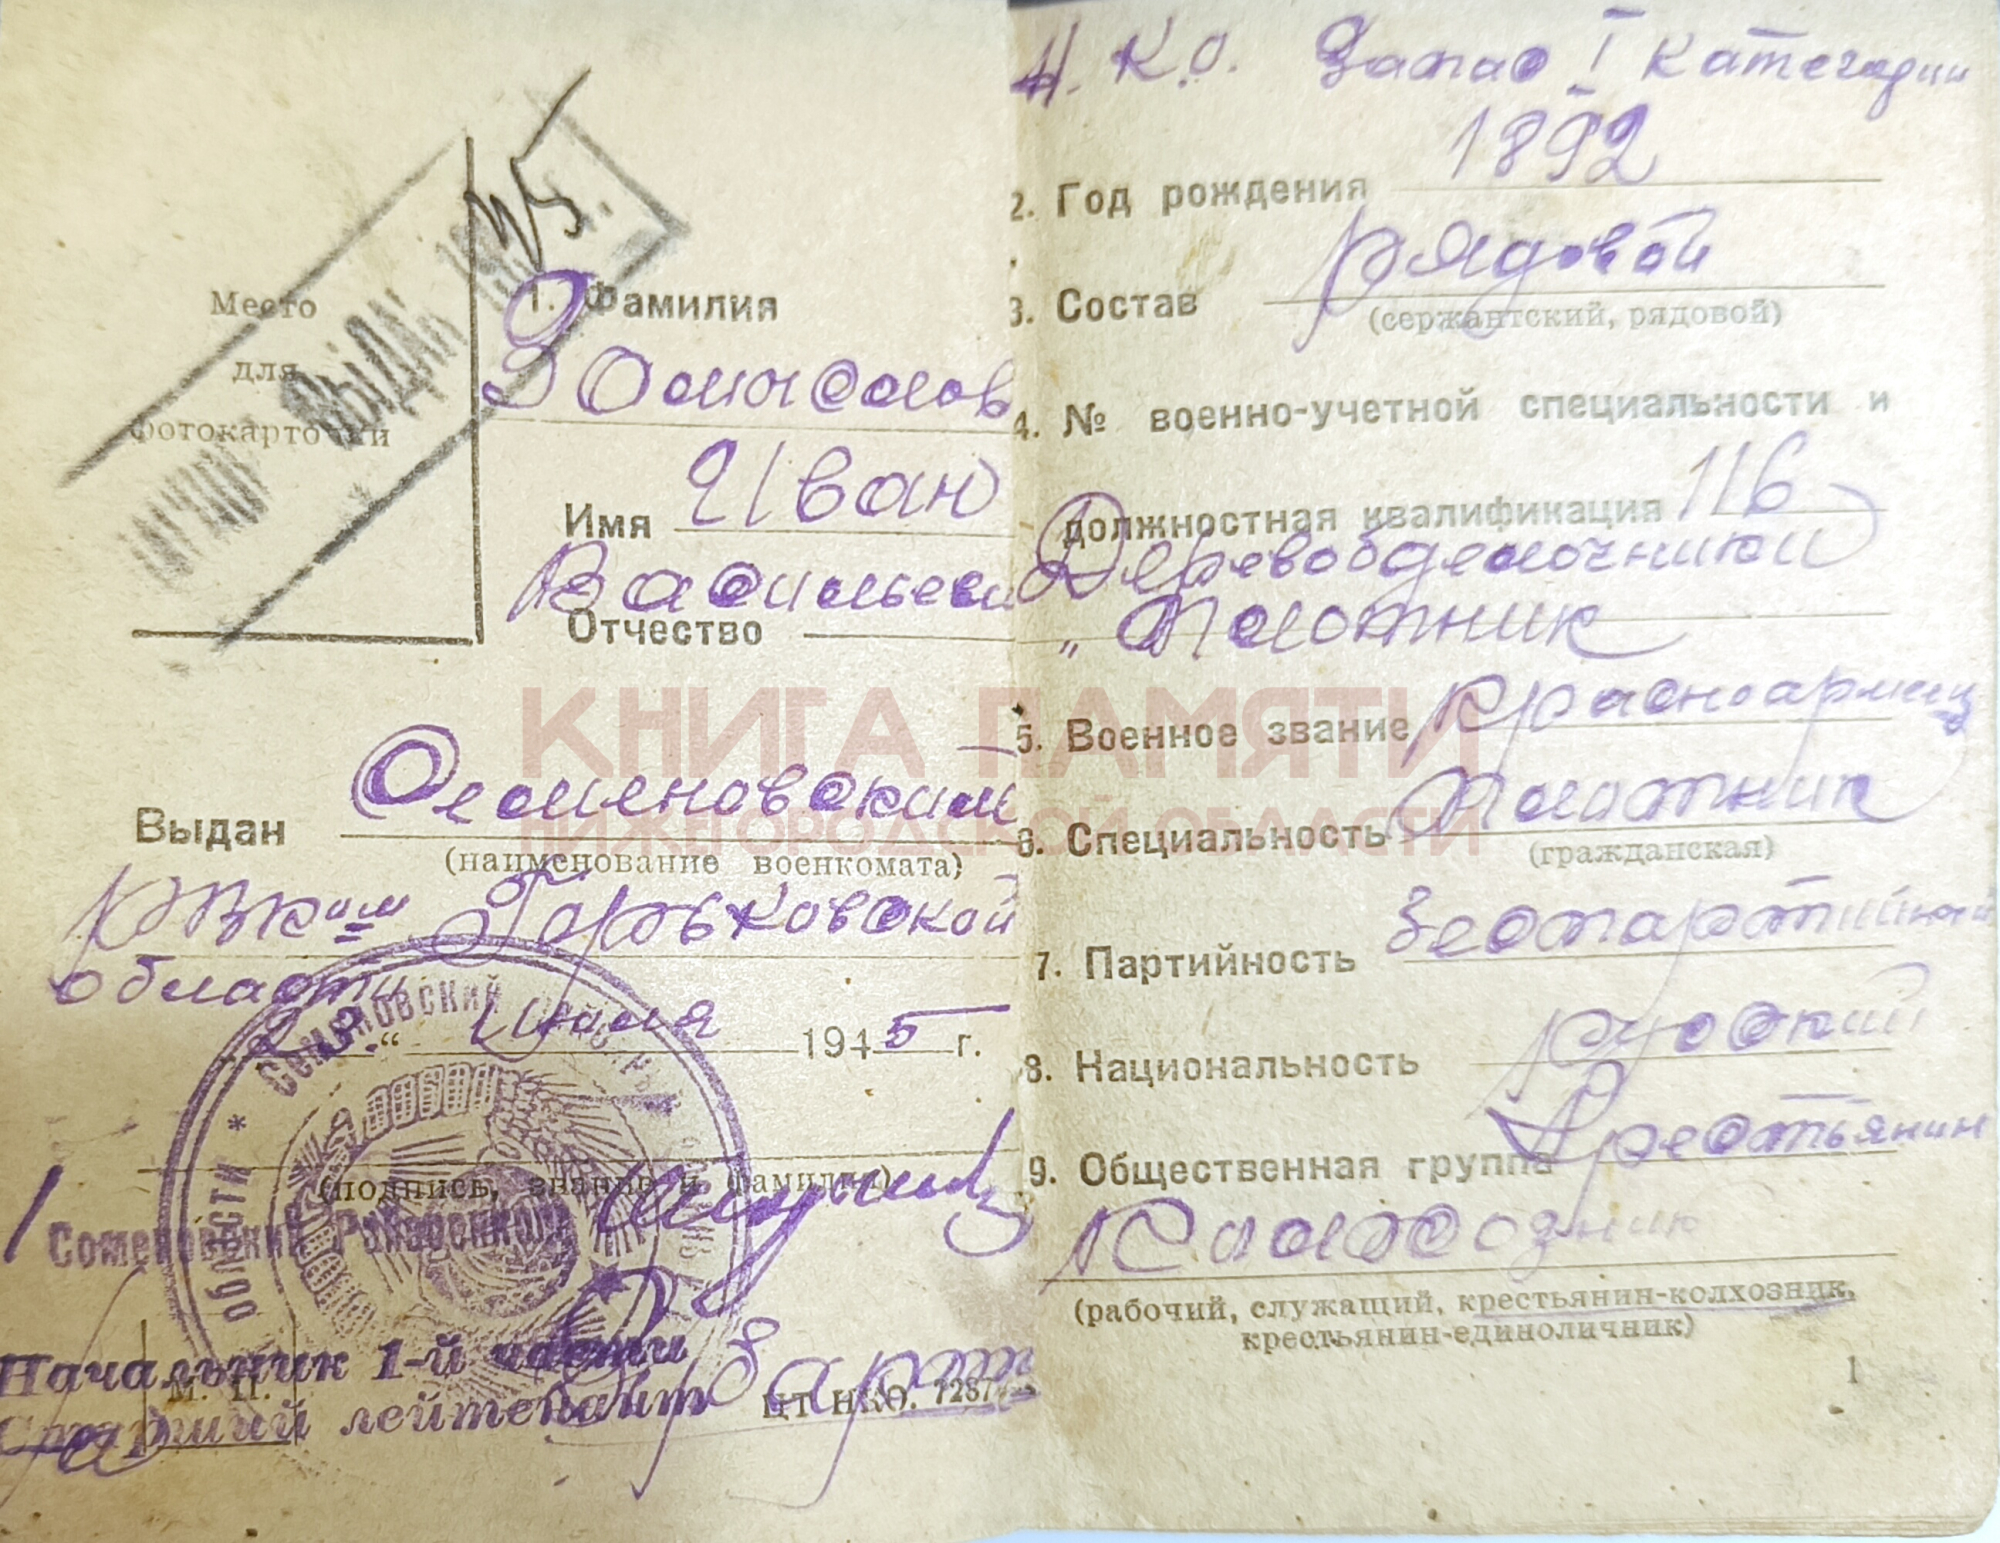 Место
для
фотокарточки
ВЫДАН 194
1. Фамилия
Имя Иван
Васильеви
Отчество
Выдан Семеновским
(наименование военкомата)
РВКом Горьковской
области
"23." Июля 1945 г.
(подпись, звание и фамилия)
Семеновский Райвоенком
Начальник 1-й части
Старший лейтенант
М. П.
ЦТ НКО. 7287
Н.К.О. Запас I категории
2. Год рождения 1892
3. Состав рядовой
(сержантский, рядовой)
4. № военно-учетной специальности и
должностная квалификация 116
Деревобделочники
„ Плотник
5. Военное звание Красноармеец
6. Специальность Плотник
(гражданская)
7. Партийность Беспартийный
8. Национальность Руский
9. Общественная группа Крестьянин
Колхозник
(рабочий, служащий, крестьянин-колхозник,
крестьянин-единоличник)
1
КНИГА ПАМЯТИ
НИЖЕГОРОДСКОЙ ОБЛАСТИ